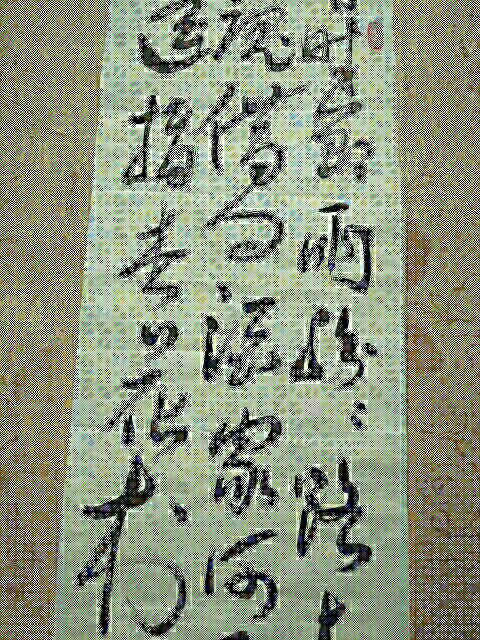 时节雨纷〻路上
魂借问酒家何
遥指杏花村